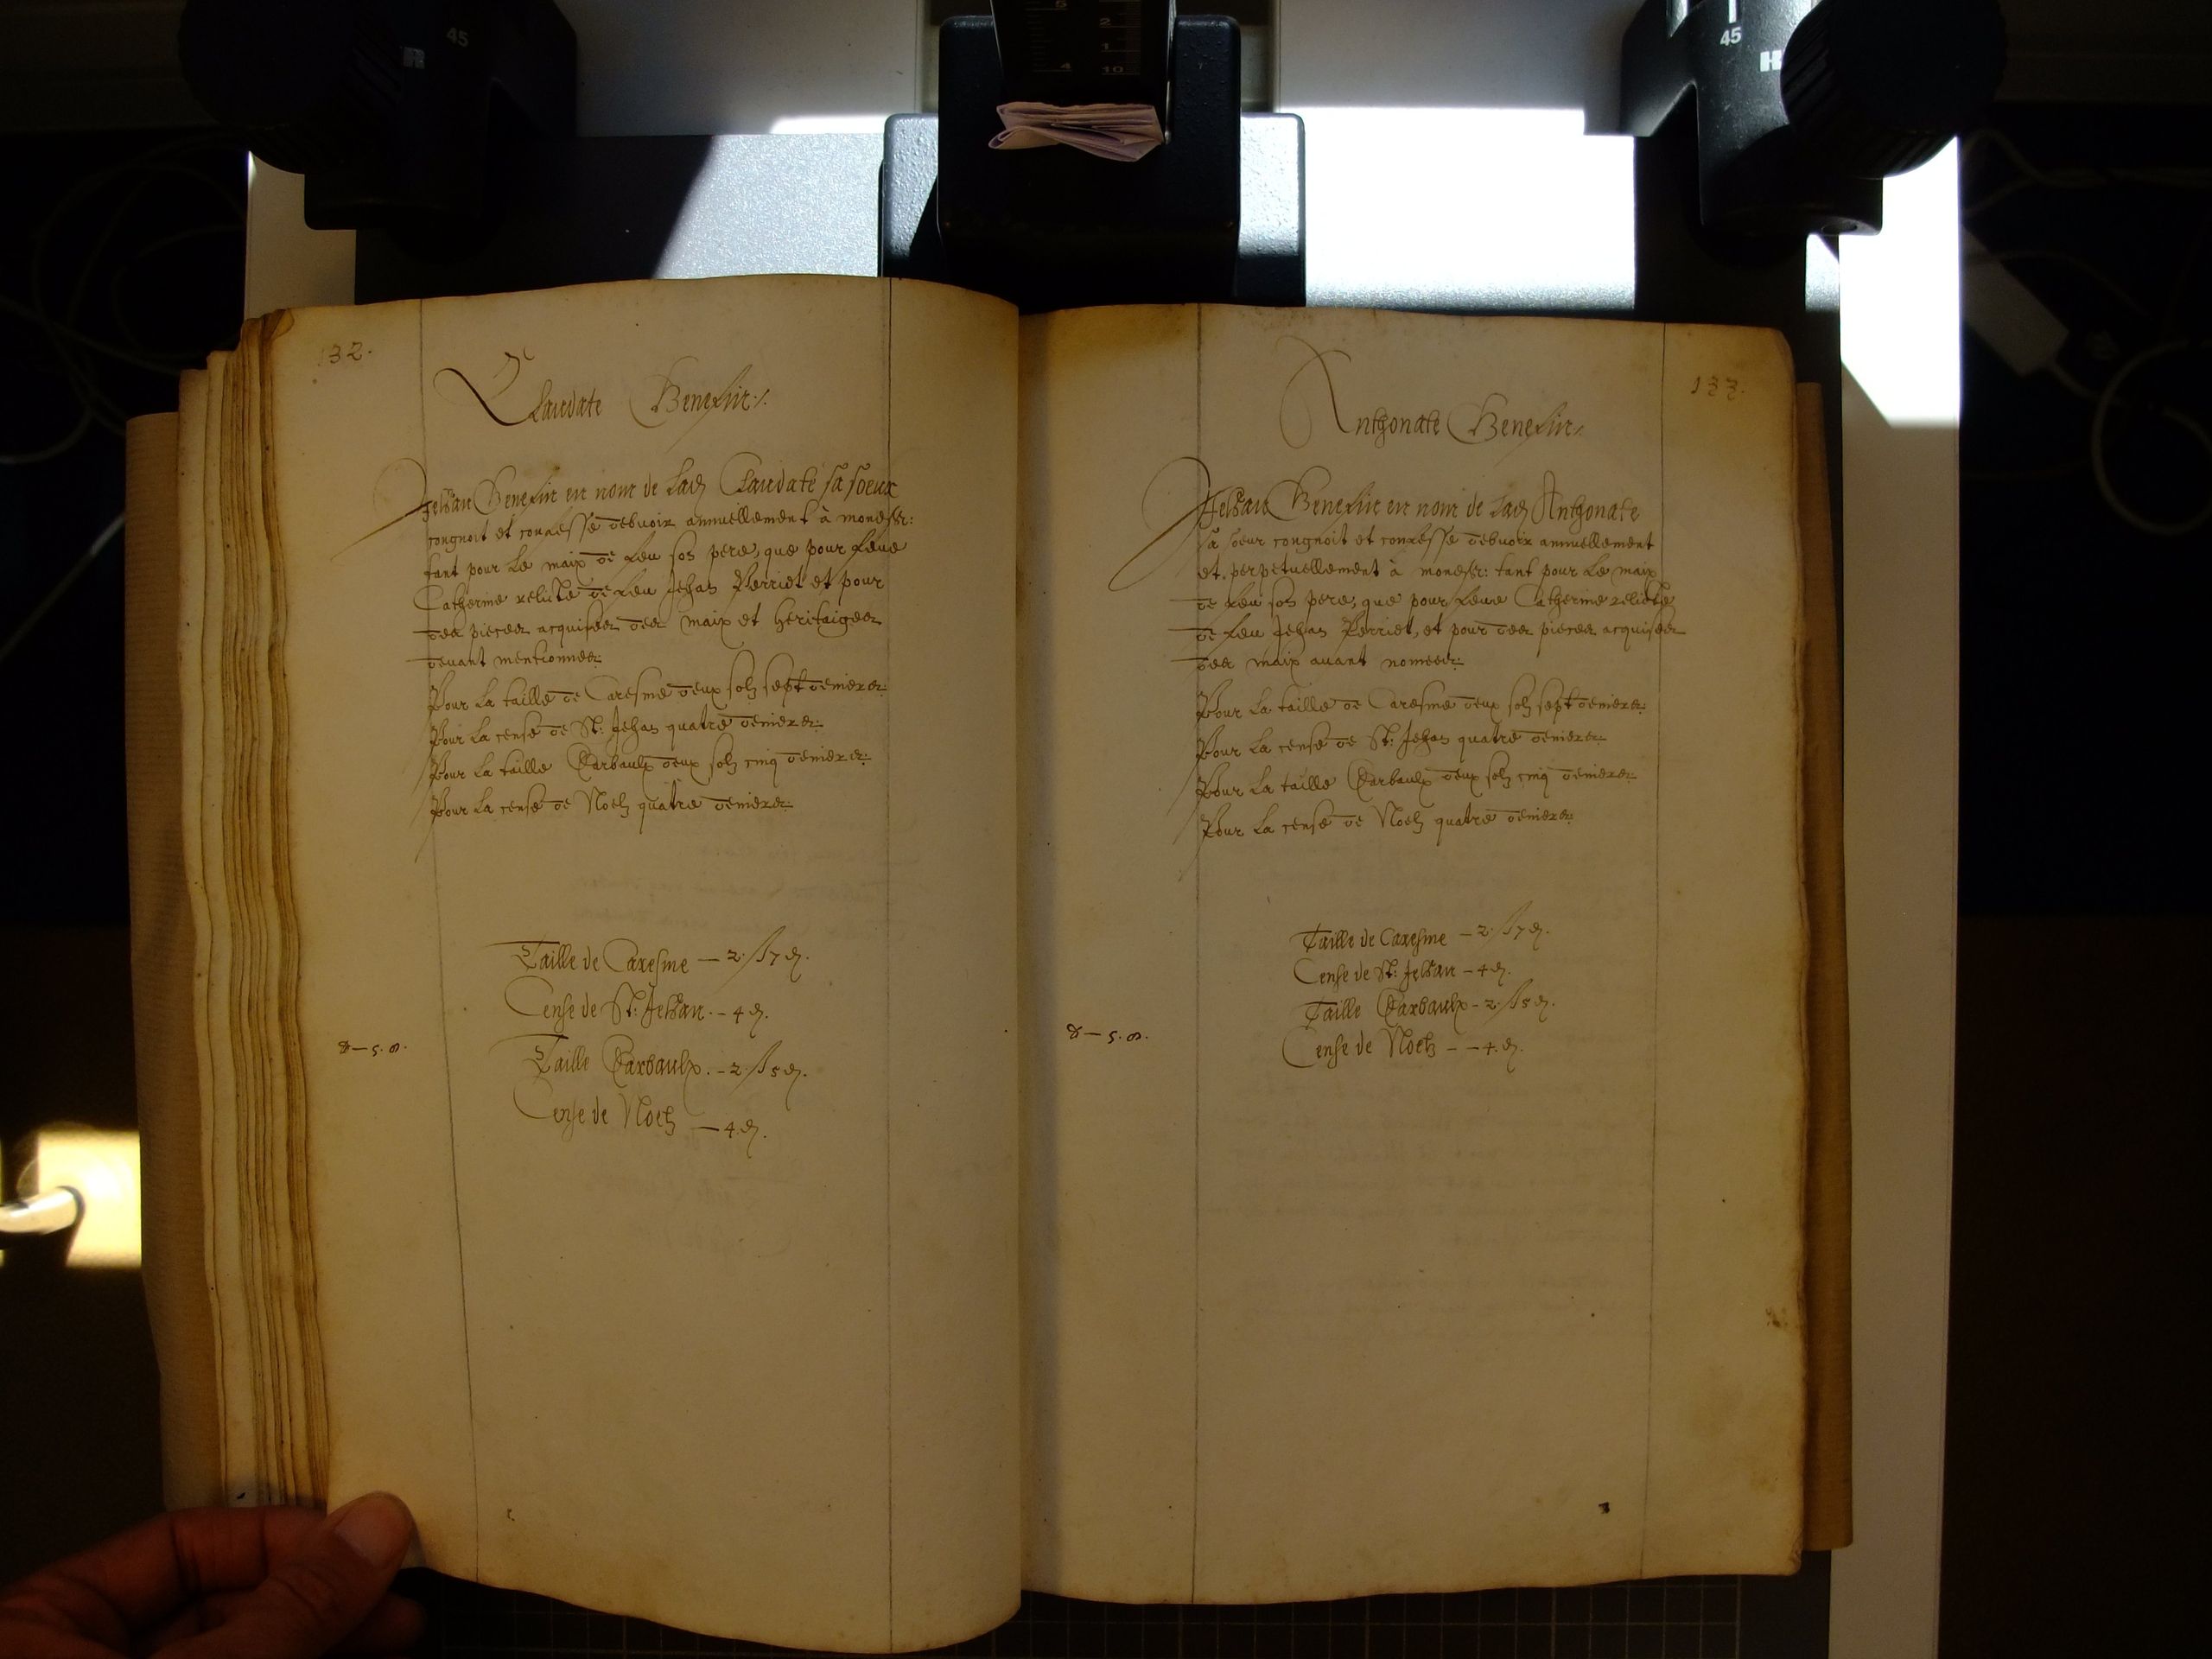 132.
Claudate Benefin:/.
Jehan Benefin en nom de lad Claudate sa soeur
congnoit et confesse debvoir annuellement à mondsr:
tant pour le maix de feu son pere, que pour feue
Catherine relicte de feu Jehan Perriet et pour
des pieces acquises des maix et heritaiges
devant mentionnes:
Pour la taille de Caresme deux solz sept deniers:
Pour la cense de St: Jehan quatre deniers:
Pour la taille Barbaulx deux solz cinq deniers:
Pour la cense de Noelz quatre deniers:
Taille de Caresme — 2. ß 7 d.
Cense de St: Jehan. – 4 d.
Taille Barbaulx. – 2. ß 5 d.
Cense de Noelz — 4. d.
133.
Anthonate Benefin:
Jehan Benefin en nom de lad Anthonate
sa soeur congnoit et confesse debvoir annuellement
et perpetuellement à mondsr: tant pour le maix
de feu son pere, que pour feue Catherine relicte
de feu Jehan Perriet, et pour des pieces acquises
des maix avant nomees:
Pour la taille de Caresme deux solz sept deniers:
Pour la cense de St: Jehan quatre deniers:
Pour la taille Barbaulx deux solz cinq deniers:
Pour la cense de Noelz quatre deniers:
Taille de Caresme – 2. ß 7 d.
Cense de St: Jehan – 4 d.
Taille Barbaulx – 2. ß 5 d.
Cense de Noelz – – 4. d.
45
45